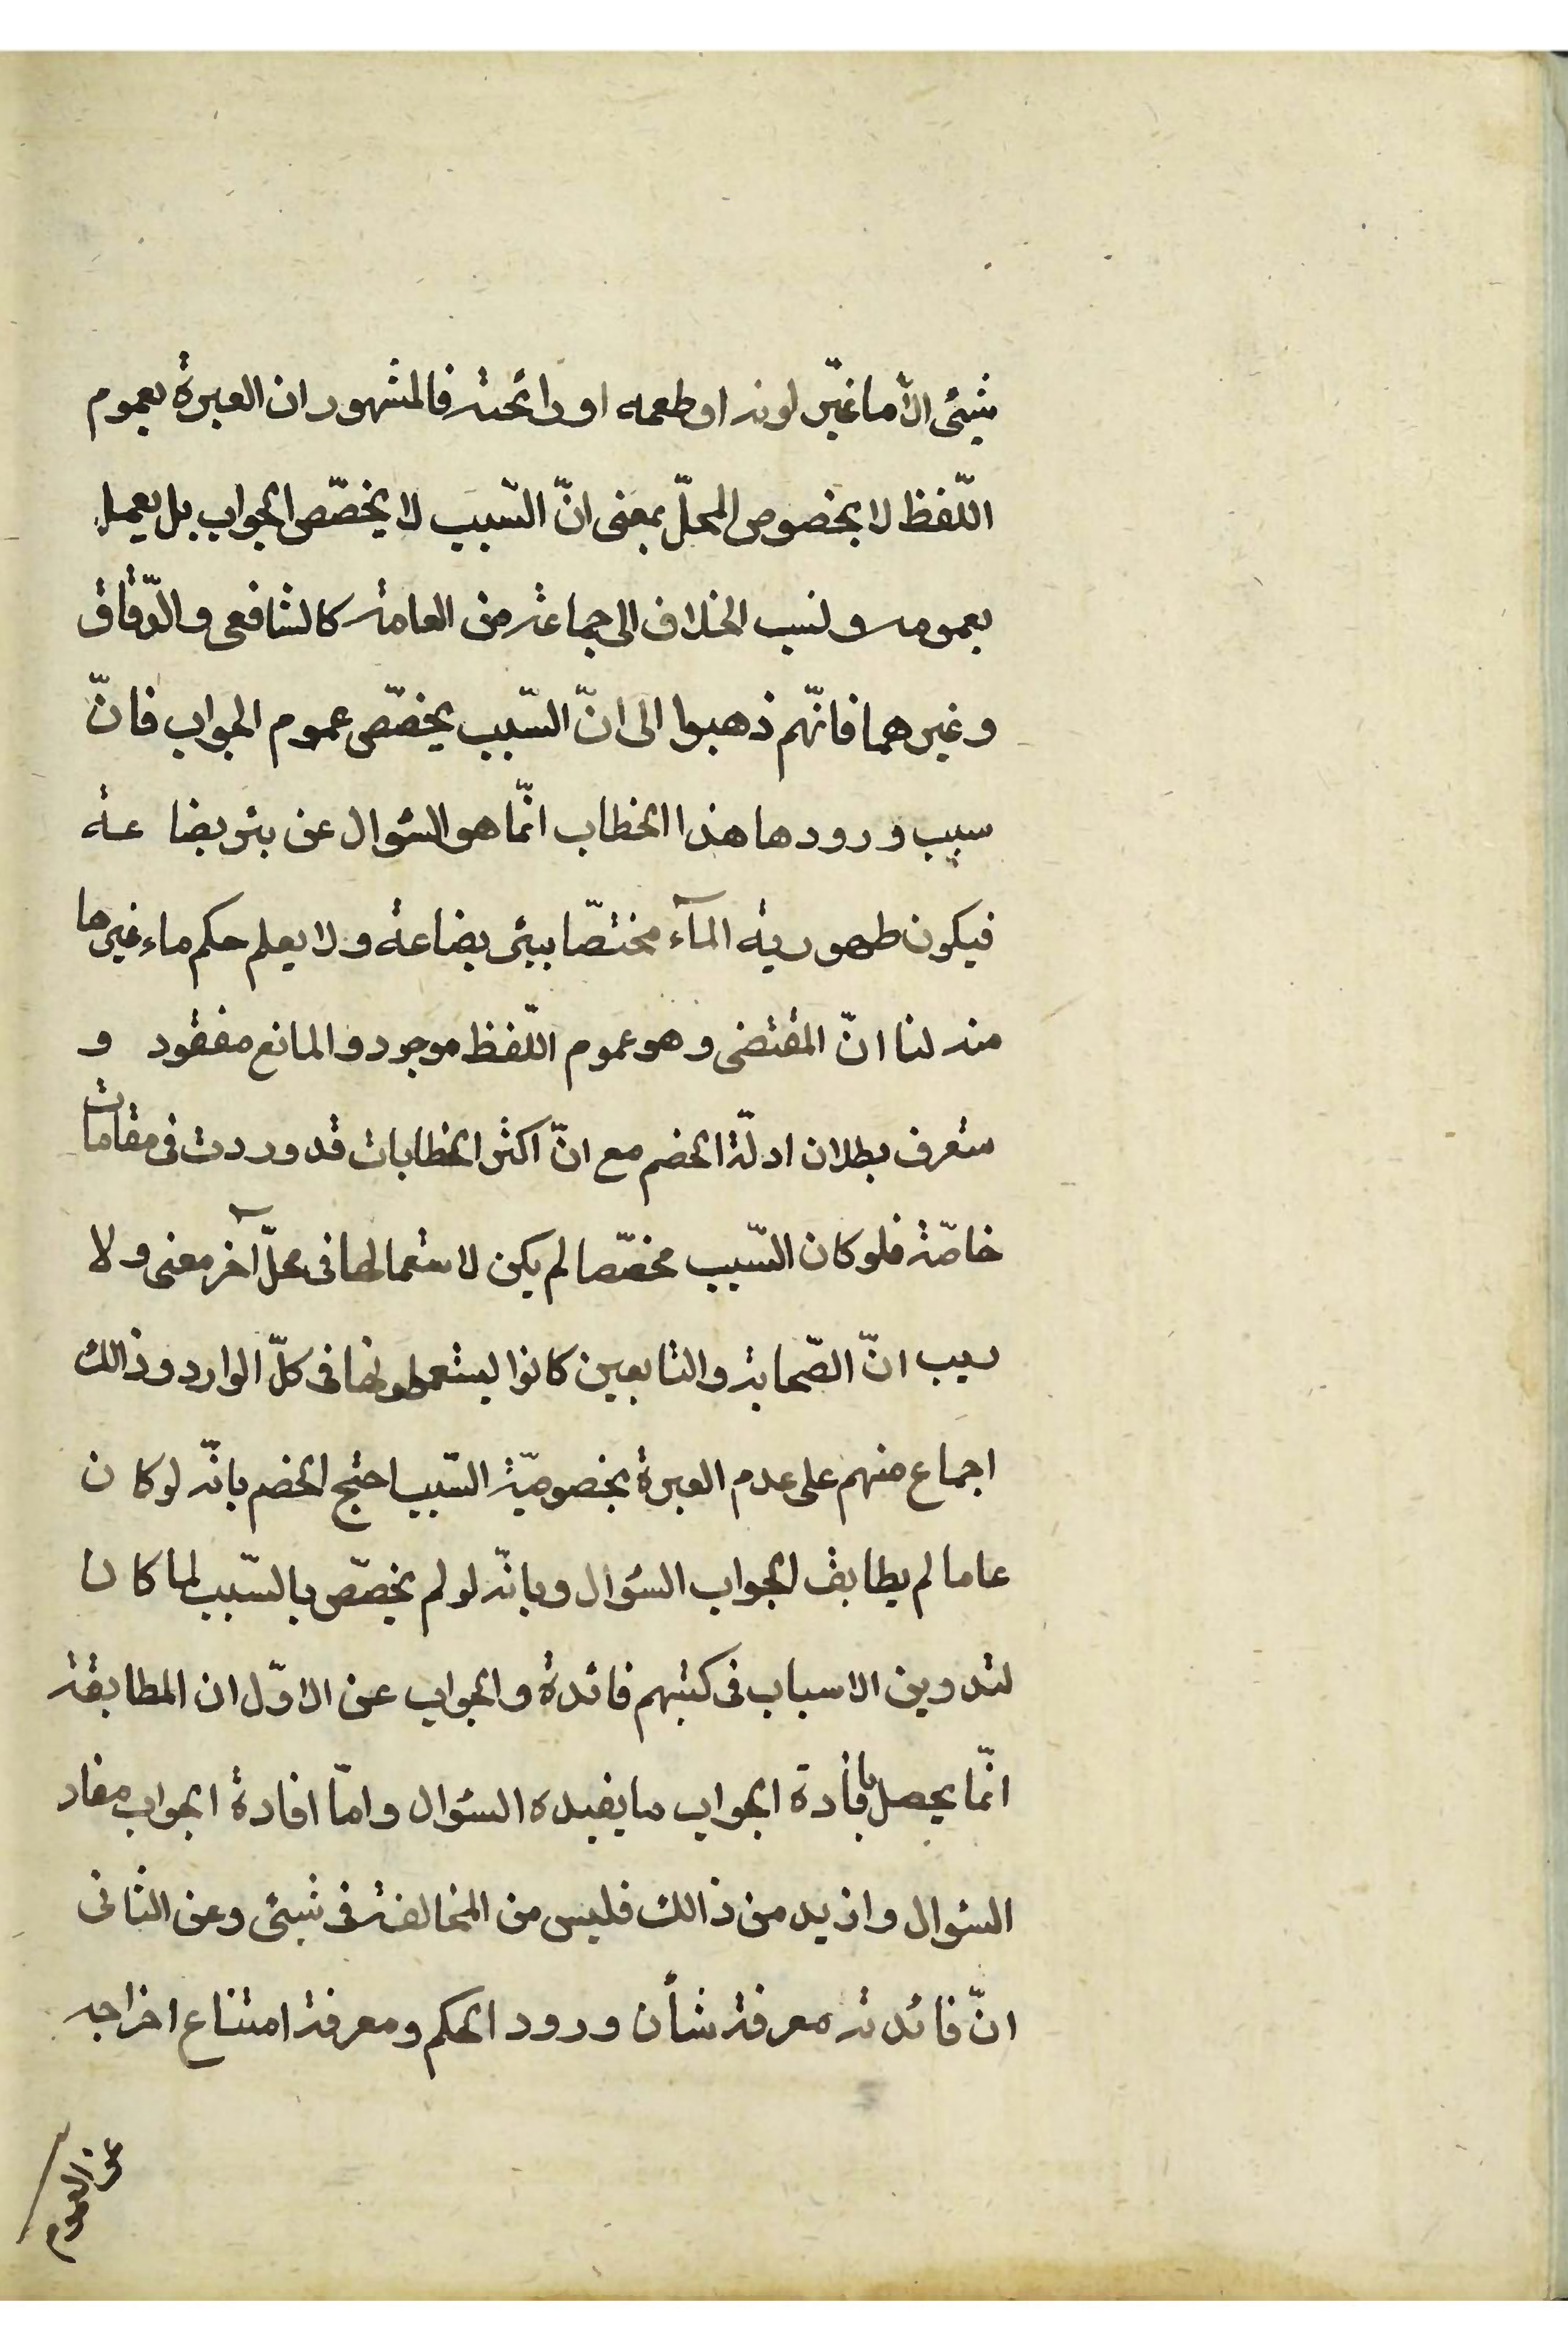 شيئى الّا ما غيّر لونه او طعمه او رائحته فالمشهور ان العبرة بعموم
اللّفظ لا بخصوص المحلّ بمعنى انّ السّبب لا يخصّص الجواب بل يعمل
بعمومه و نسب الخلاف الى جماعة من العامة كالشافعى و الدّقاق
و غيرهما فانّهم ذهبوا الى انّ السّبب يخصّص عموم الجواب فانّ
سبب ورودها هذا الخطاب انّما هو السئوال عن بئر بضا عة
فيكون طهورية المآء مختصّا ببئر بضاعة و لا يعلم حكم ماء غيرها
منه لنا انّ المقتضى و هو عموم اللّفظ موجود و المانع مفقود و
ستعرف بطلان ادلّة الخصم مع انّ اكثر الخطابات قد وردت فى مقامات
خاصّة فلو كان السّبب مخصّصا لم يكن لاستعمالها فى محلّ آخر معنى و لا
ريب انّ الصّحابة و التابعين كانوا يستعملونها فى كلّ الوارد و ذالك
اجماع منهم على عدم العبرة بخصوصيّة السّبب احتج الخصم بانّه لو كا ن
عاما لم يطابق الجواب السئوال و بانّه لو لم يخصّص بالسّبب لما كا ن
لتدوين الاسباب فى كتبهم فائدة و الجواب عن الاوّل ان المطابقة
انّما يحصل بافادة الجواب ما يفيده السئوال و امّا افادة الجواب مفاد
السئوال و ازيد من ذالك فليس من المخالفة فى شيئى و عن الثانى
انّ فائدته معرفة شأن ورود الحكم و معرفة امتناع اخراجه
عن العموم